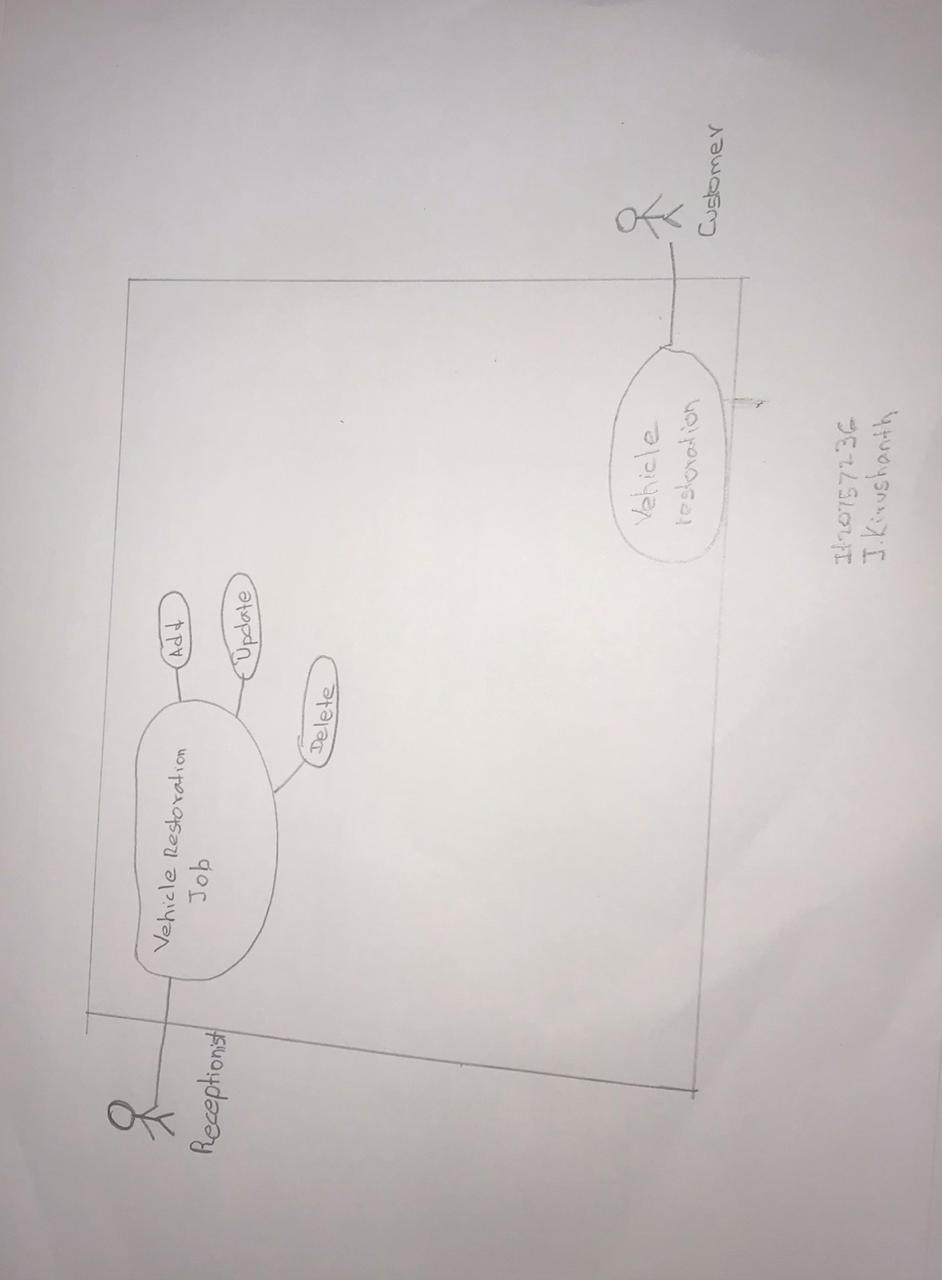 Receptionist
Vehicle Restoration
Job
Add
Update
Delete
Vehicle
restoration
Customer
It20757236
J.Kirushanth